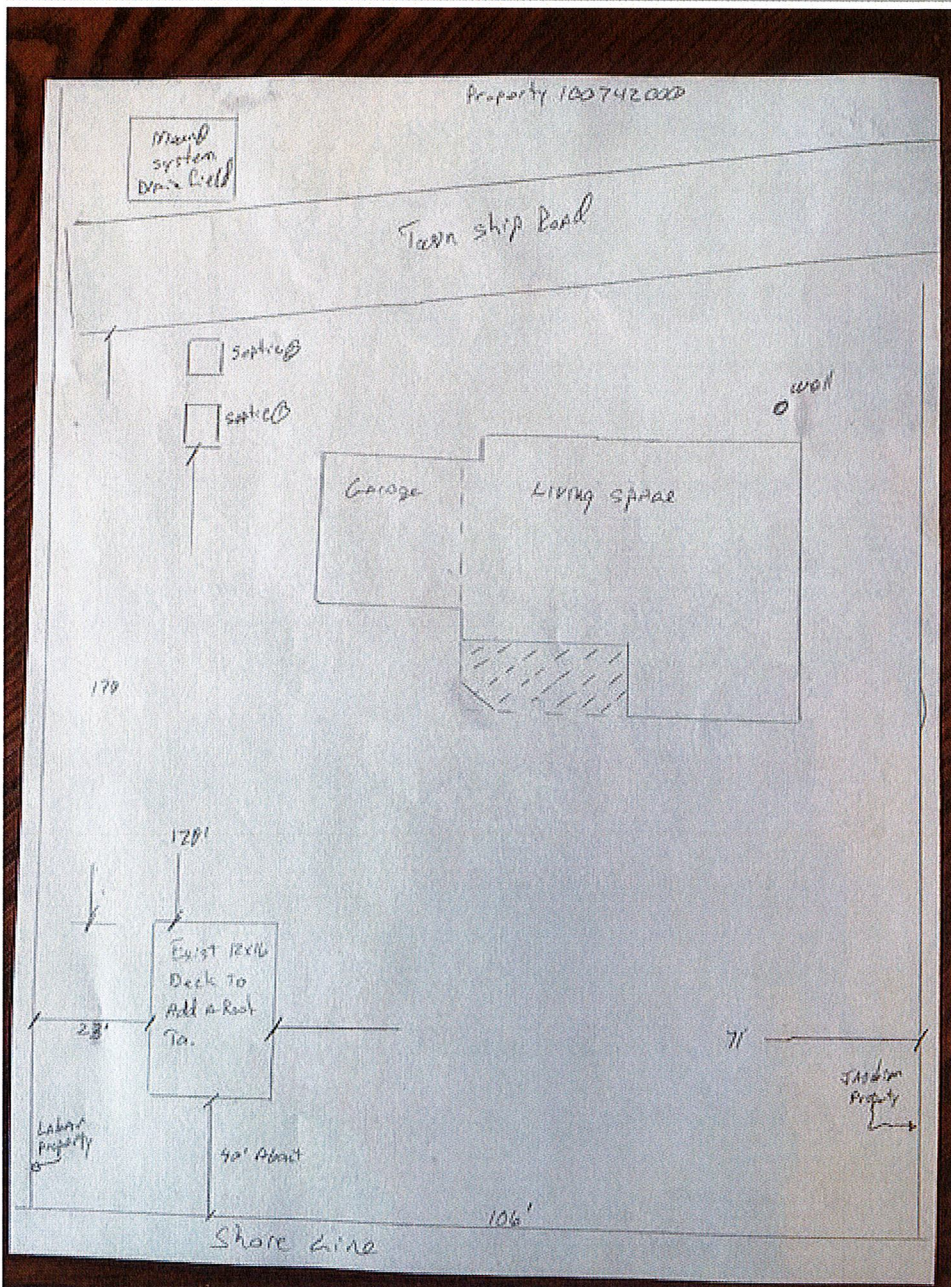 Property 100742000
Mound
system
Drain field
Township Road
Septic②
Septic①
well
Garage
Living space
170
120'
Exist 12x16
Deck To
Add A Roof
To.
23'
71'
Property
Property
40' About
106'
Shore Line